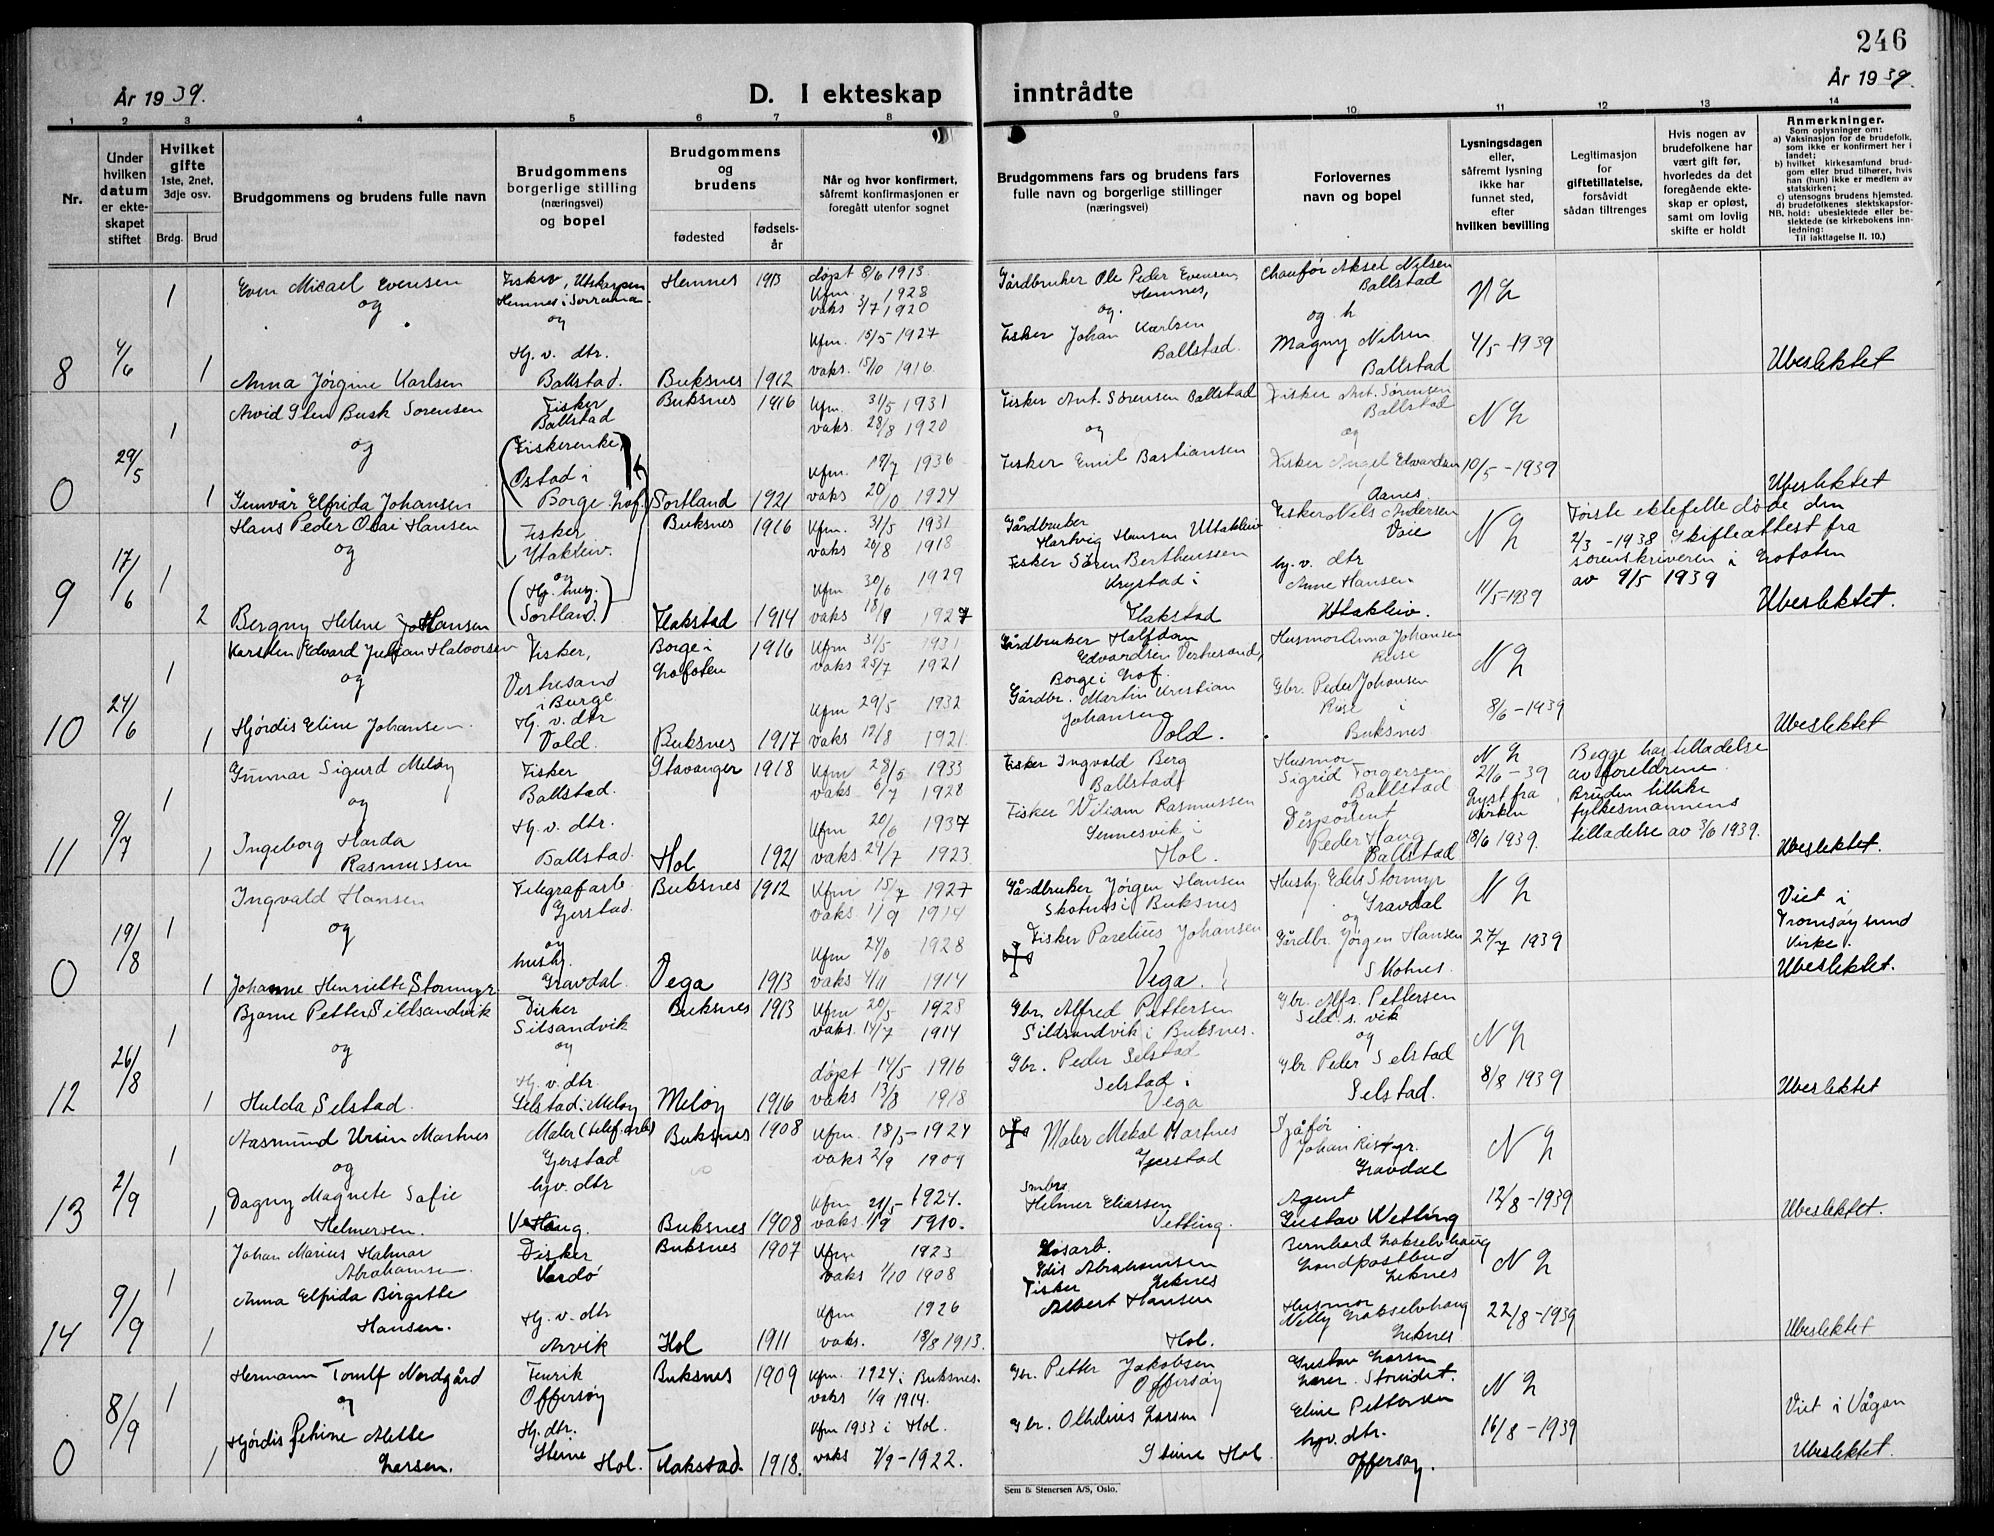 246
År 1939.
D. I ekteskap inntrådte
År 1939.
1 2 3 4 5 6 7 8 9 10 11 12 13 14
Nr.
Under
hvilken
datum
er ekte-
skapet
stiftet
Hvilket
gifte
1ste, 2net,
3dje osv.
Brdg. Brud
Brudgommens og brudens fulle navn
Brudgommens
borgerlige stilling
(næringsvei)
og bopel
Brudgommens
og
brudens
fødested
fødsels-
år
Når og hvor konfirmert,
såfremt konfirmasjonen er
foregått utenfor sognet
Brudgommens fars og brudens fars
fulle navn og borgerlige stillinger
(næringsvei)
Forlovernes
navn og bopel
Lysningsdagen
eller,
såfremt lysning
ikke har
funnet sted,
efter
hvilken bevilling
Legitimasjon
for
giftetillatelse,
forsåvidt
sådan tiltrenges
Hvis nogen av
brudefolkene har
vært gift før,
hvorledes da det
foregående ekte-
skap er opløst,
samt om lovlig
skifte er holdt
Anmerkninger.
Som oplysninger om:
a) Vaksinasjon for de brudefolk,
som ikke er konfirmert her i
landet;
b) hvilket kirkesamfund brud-
gom eller brud tilhører, hvis
han (hun) ikke er medlem av
statskirken;
c) utensogns brudens hjemsted.
d) brudefolkenes slektskapsfor-
hold: ubeslektede eller be-
slektede (se kirkebokens inn-
ledning:
Til iakttagelse II. 10.)
8 4/6 1 1
Even Mikael Evensen
og
Anna Jørgine Karlsen
Fisker, Utskarpen
Hemnes i Sørrana
og
Hj. v. dtr.
Ballstad.
Hemnes 1913
Buksnes 1912
døpt 8/6 1913
Kfm. 1928
vaks 3/7 1920
Kfm. 15/5 1927
vaks. 15/10 1916
Gårdbruker Ole Peder Evensen
Hemnes,
og
Fisker Johan Karlsen
Ballstad.
Chaufør Aksel Nilsen
Ballstad
og
Magny Nilsen
Ballstad
N L
4/5 - 1939
Ubeslektet
0 29/5 1 1
Arvid Glen Busk Sørensen
og
Gunvår Elfrida Johansen
Fisker
Ballstad
(Fiskerenke,
Østad i
Borge Lof.
Buksnes 1916
Sortland 1921
Kfm. 31/5 1931
vaks. 28/8 1920
Kfm. 19/7 1936
vaks 20/10 1924
Fisker Ant. Sørensen Ballstad
og
Fisker Emil Bastiansen
Fisker Ant. Sørensen
Ballstad
og
Fisker Angel Edvardsen
Aanes.
N L
10/5 - 1939
Ubeslektet
9 17/6 1 2
Hans Peder Olai Hansen
og
Bergny Helene Johansen
Fisker
Utakleiv.
og
(Hj. husg.
Sortland.)
Buksnes 1916
Flakstad 1914
Kfm. 31/5 1931
vaks 26/8 1918
Kfm 30/6 1929
vaks 18/9 1927
Gårdbruker
Hartvig Hansen Uttakleiv
Fisker Søren Bertheussen
Krystad i
Flakstad
Fisker Nels Andersen
Voie
hj. v. dtr
Anne Hansen
Uttakleiv.
N L
11/5 - 1939
Første ektefelle døde den
2/3 - 1938 Skifteattest fra
sorenskriveren i Lofoten
av 9/5 1939
Ubeslektet.
10 24/6 1 1
Karsten Edvard Julian Halvorsen
og
Hjørdis Eline Johansen.
Fisker,
Vestresand
i Borge
Hj. v. dtr
Vold.
Borge i
Lofoten 1916
Buksnes 1917
Kfm 31/5 1931
vaks 25/7 1921
Kfm 29/5 1932
vaks 12/8 1921
Gårdbruker Halfdan
Edvardsen Vestresand,
Borge i Lof.
Gårdbr. Martin Kristian
Johansen
Vold.
Husmor Anna Johansen
Rise
Gbr. Peder Johansen
Rise i
Buksnes
N L
8/6 - 1939
Ubeslektet
11 9/7 1 1
Gunnar Sigurd Meløy
og
Ingeborg Harda
Rasmussen
Fisker
Ballstad.
Hj. v. dtr.
Ballstad.
Stavanger 1918
Hol 1921
Kfm 28/5 1933
vaks 6/7 1928
Kfm 20/6 1937
vaks 24/7 1923
Fisker Ingvald Berg
Ballstad
Fisker Wiliam Rasmussen
Sennesvik i
Hol.
Husmor
Sigrid Torgersen
Ballstad
og
Disponent
Peder Haug
Ballstad
N L
21/6 - 39
Lyst fra
kirken
18/6 1939.
Begge har tilladelse
av foreldrene
Bruden tillike
fylkesmannens
tilladelse av 3/6 1939.
Ubeslektet.
0 19/8 1 1
Ingvald Hansen
og
Johanne Henriette Stormyr
Telegrafarb.
Gjerstad.
og
hushj.
Gravdal.
Buksnes 1912
Vega 1913
Kfm 15/7 1927
vaks 1/9 1914
Kfm 24/6 1928
vaks 4/11 1914
Gårdbruker Jørgen Hansen
Skotnes i Buksnes
Fisker Parelius Johansen
Vega.
Hushj. Edel Stormyr
Gravdal
og
Gårdbr. Jørgen Hansen
Skotnes.
N L
27/7 1939
Viet i
Tromsøysund
kirke.
Ubeslektet.
12 26/8 1 1
Bjarne Petter Sildsandvik
og
Hulda Selstad.
Fisker
Silsandvik
og
Hj. v. dtr
Selstad i Meløy
Buksnes 1913
Meløy 1916
Kfm 20/5 1928
vaks. 14/7 1914
døpt 14/5 1916
vaks 13/8 1918
Gbr. Alfred Pettersen
Sildsandvik i Buksnes.
Gbr. Peder Selstad
Selstad i
Vega
Gbr. Alfr. Pettersen
Sild. s. vik
og
Gbr Peder Selstad
Selstad.
N L
8/8 1939
Ubeslektet
13 2/9 1 1
Aasmund Ursin Martnes
og
Dagny Magnete Sofie
Helmersen.
Maler (telef.arb)
Gjerstad
hjv. dtr
Buksnes 1908
Buksnes 1908
Kfm. 18/5 - 1924
vaks 2/9 1909
Kfm 21/5 - 1924.
vaks. 1/9 1910.
Maler Mekal Martnes
Gjerstad
Helmer Eliassen
Vetting.
Sjåfør
Johan
Gravdal
Agent
Gustav Wetting
N L
12/8 - 1939
Ubeslektet.
14 9/9 1 1
Johan Marius Halmar
Abrahamsen.
Anna Elfrida Birgitte
Hansen.
Fisker
Vardø
Hj. v. dtr
Arvik
Buksnes 1907
Hol 1911
Kfm 1923
vaks 1/10 1908
Kfm 1926
vaks. 18/8 1913.
Løsarb.
Edis Abrahamsen
Leknes
Fisker
Albert Hansen
Hol.
Bernhard Lakselvhaug
Landpostbud
Leknes
Husmor
Nelly Lakselvhaug
Leknes
N L
22/8 - 1939
Ubeslektet
0 8/9 1 1
Hermann Tomlf Nordgård
og
Hjørdis Petrine Mette
Larsen.
Fenrik
Offersøy
Hj. dtr.
Steine Hol.
Buksnes 1909
Flakstad. 1918.
Kfm. 1924 i Buksnes.
vaks 1/9 1914.
Kfm 1933 i Hol.
vaks 7/9 - 1922.
Gbr. Petter Jakobsen
Offersøy
Gbr. Othelius Larsen
Steine Hol
Gustav Larsen
Lærer.
Eline Pettersen
hjv. dtr.
Offersøy.
N L
16/8 - 1939
Viet i Vågan
Ubeslektet.
Sem & Stenersen A/S, Oslo.